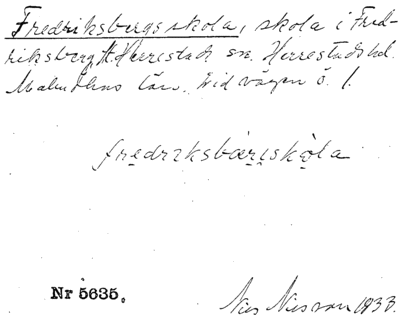 Fredriksbergs skola, skola i Fred-
riksberg, St. Herrestads sn. Herrestads hd.
Malmöhus län. Vid vägen ö. 1.
fredriksbærıskọla
Nr 5635.
Nils Nilsson 1933.